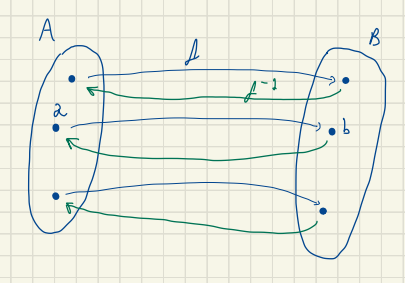 A
B
f
f⁻¹
a
b